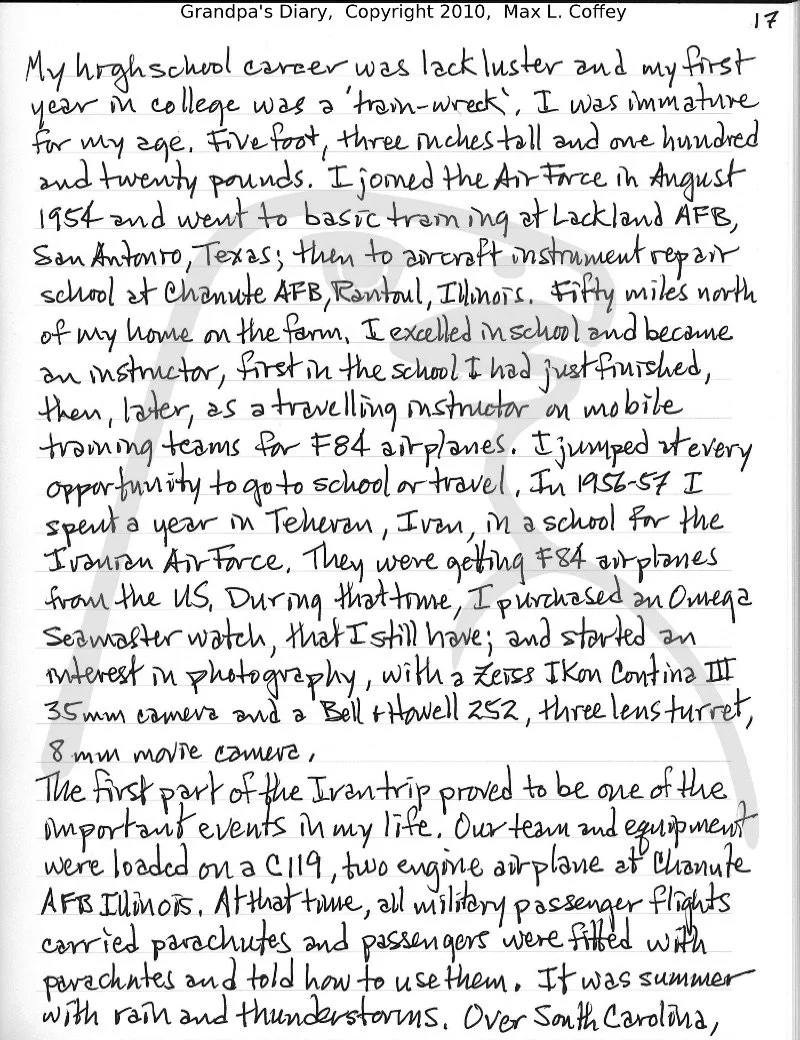 Grandpa's Diary, Copyright 2010, Max L. Coffey
17
My highschool career was lackluster and my first
year in college was a 'train-wreck'. I was immature
for my age. Five foot, three inches tall and one hundred
and twenty pounds. I joined the Air Force in August
1954 and went to basic training at Lackland AFB,
San Antonio, Texas; then to aircraft instrument repair
school at Chanute AFB, Rantoul, Illinois. Fifty miles north
of my home on the farm. I excelled in school and became
an instructor, first in the school I had just finished,
then, later, as a travelling instructor on mobile
training teams for F84 airplanes. I jumped at every
opportunity to go to school or travel. In 1956-57 I
spent a year in Teheran, Iran, in a school for the
Iranian Air Force. They were getting F84 airplanes
from the US. During that time, I purchased an Omega
Seamaster watch, that I still have; and started an
interest in photography, with a Zeiss Ikon Contina III
35mm camera and a Bell + Howell 252, three lens turret,
8 mm movie camera.
The first part of the Iran trip proved to be one of the
important events in my life. Our team and equipment
were loaded on a C119, two engine airplane at Chanute
AFB Illinois. At that time, all military passenger flights
carried parachutes and passengers were fitted with
parachutes and told how to use them. It was summer
with rain and thunderstorms. Over South Carolina,